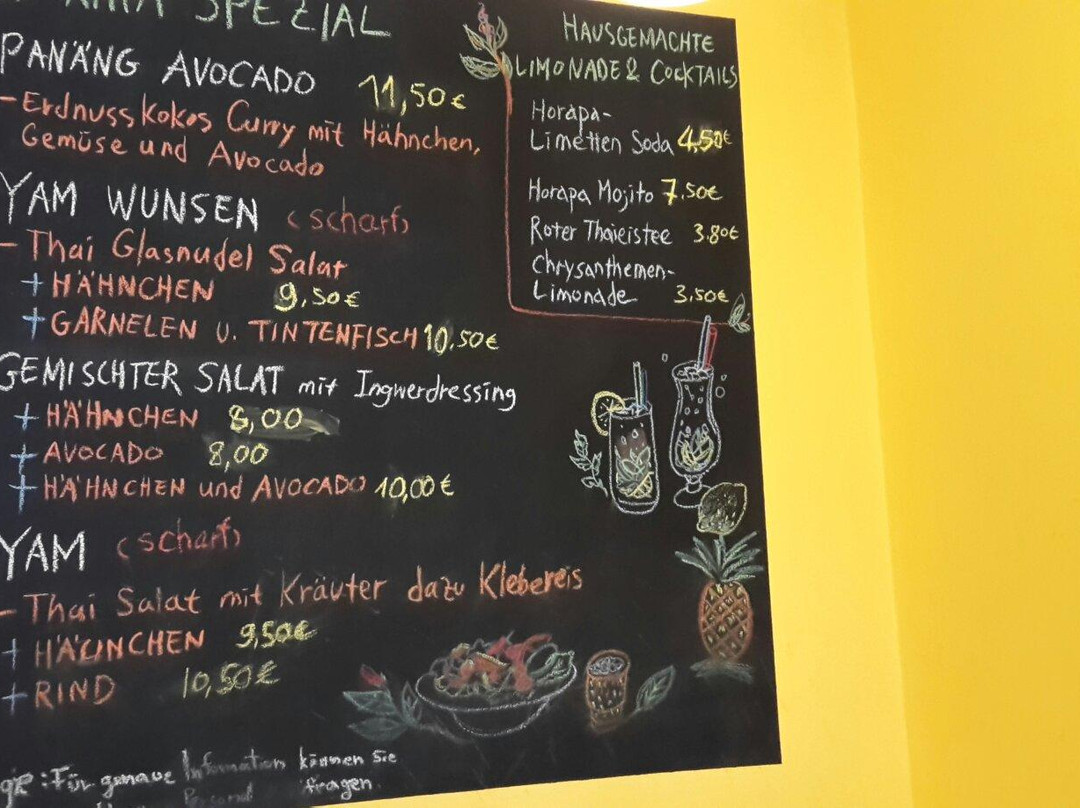 SPEZIAL
PANÄNG AVOCADO 11,50€
- Erdnuss Kokos Curry mit Hähnchen,
Gemüse und Avocado
YAM WUNSEN (scharf)
- Thai Glasnudel Salat
+ HÄHNCHEN 9,50€
+ GARNELEN U. TINTENFISCH 10,50€
GEMISCHTER SALAT mit Ingwerdressing
+ HÄHNCHEN 8,00
+ AVOCADO 8,00
+ HÄHNCHEN und AVOCADO 10,00€
YAM (scharf)
- Thai Salat mit Kräuter dazu Klebereis
+ HÄHNCHEN 9,50€
+ RIND 10,50€
: Für genaue Information können Sie
Personal fragen.
HAUSGEMACHTE
LIMONADE & COCKTAILS
Horapa-
Limetten Soda 4,50€
Horapa Mojito 7.50€
Roter Thaieistee 3.80€
Chrysanthemen-
Limonade 3,50€